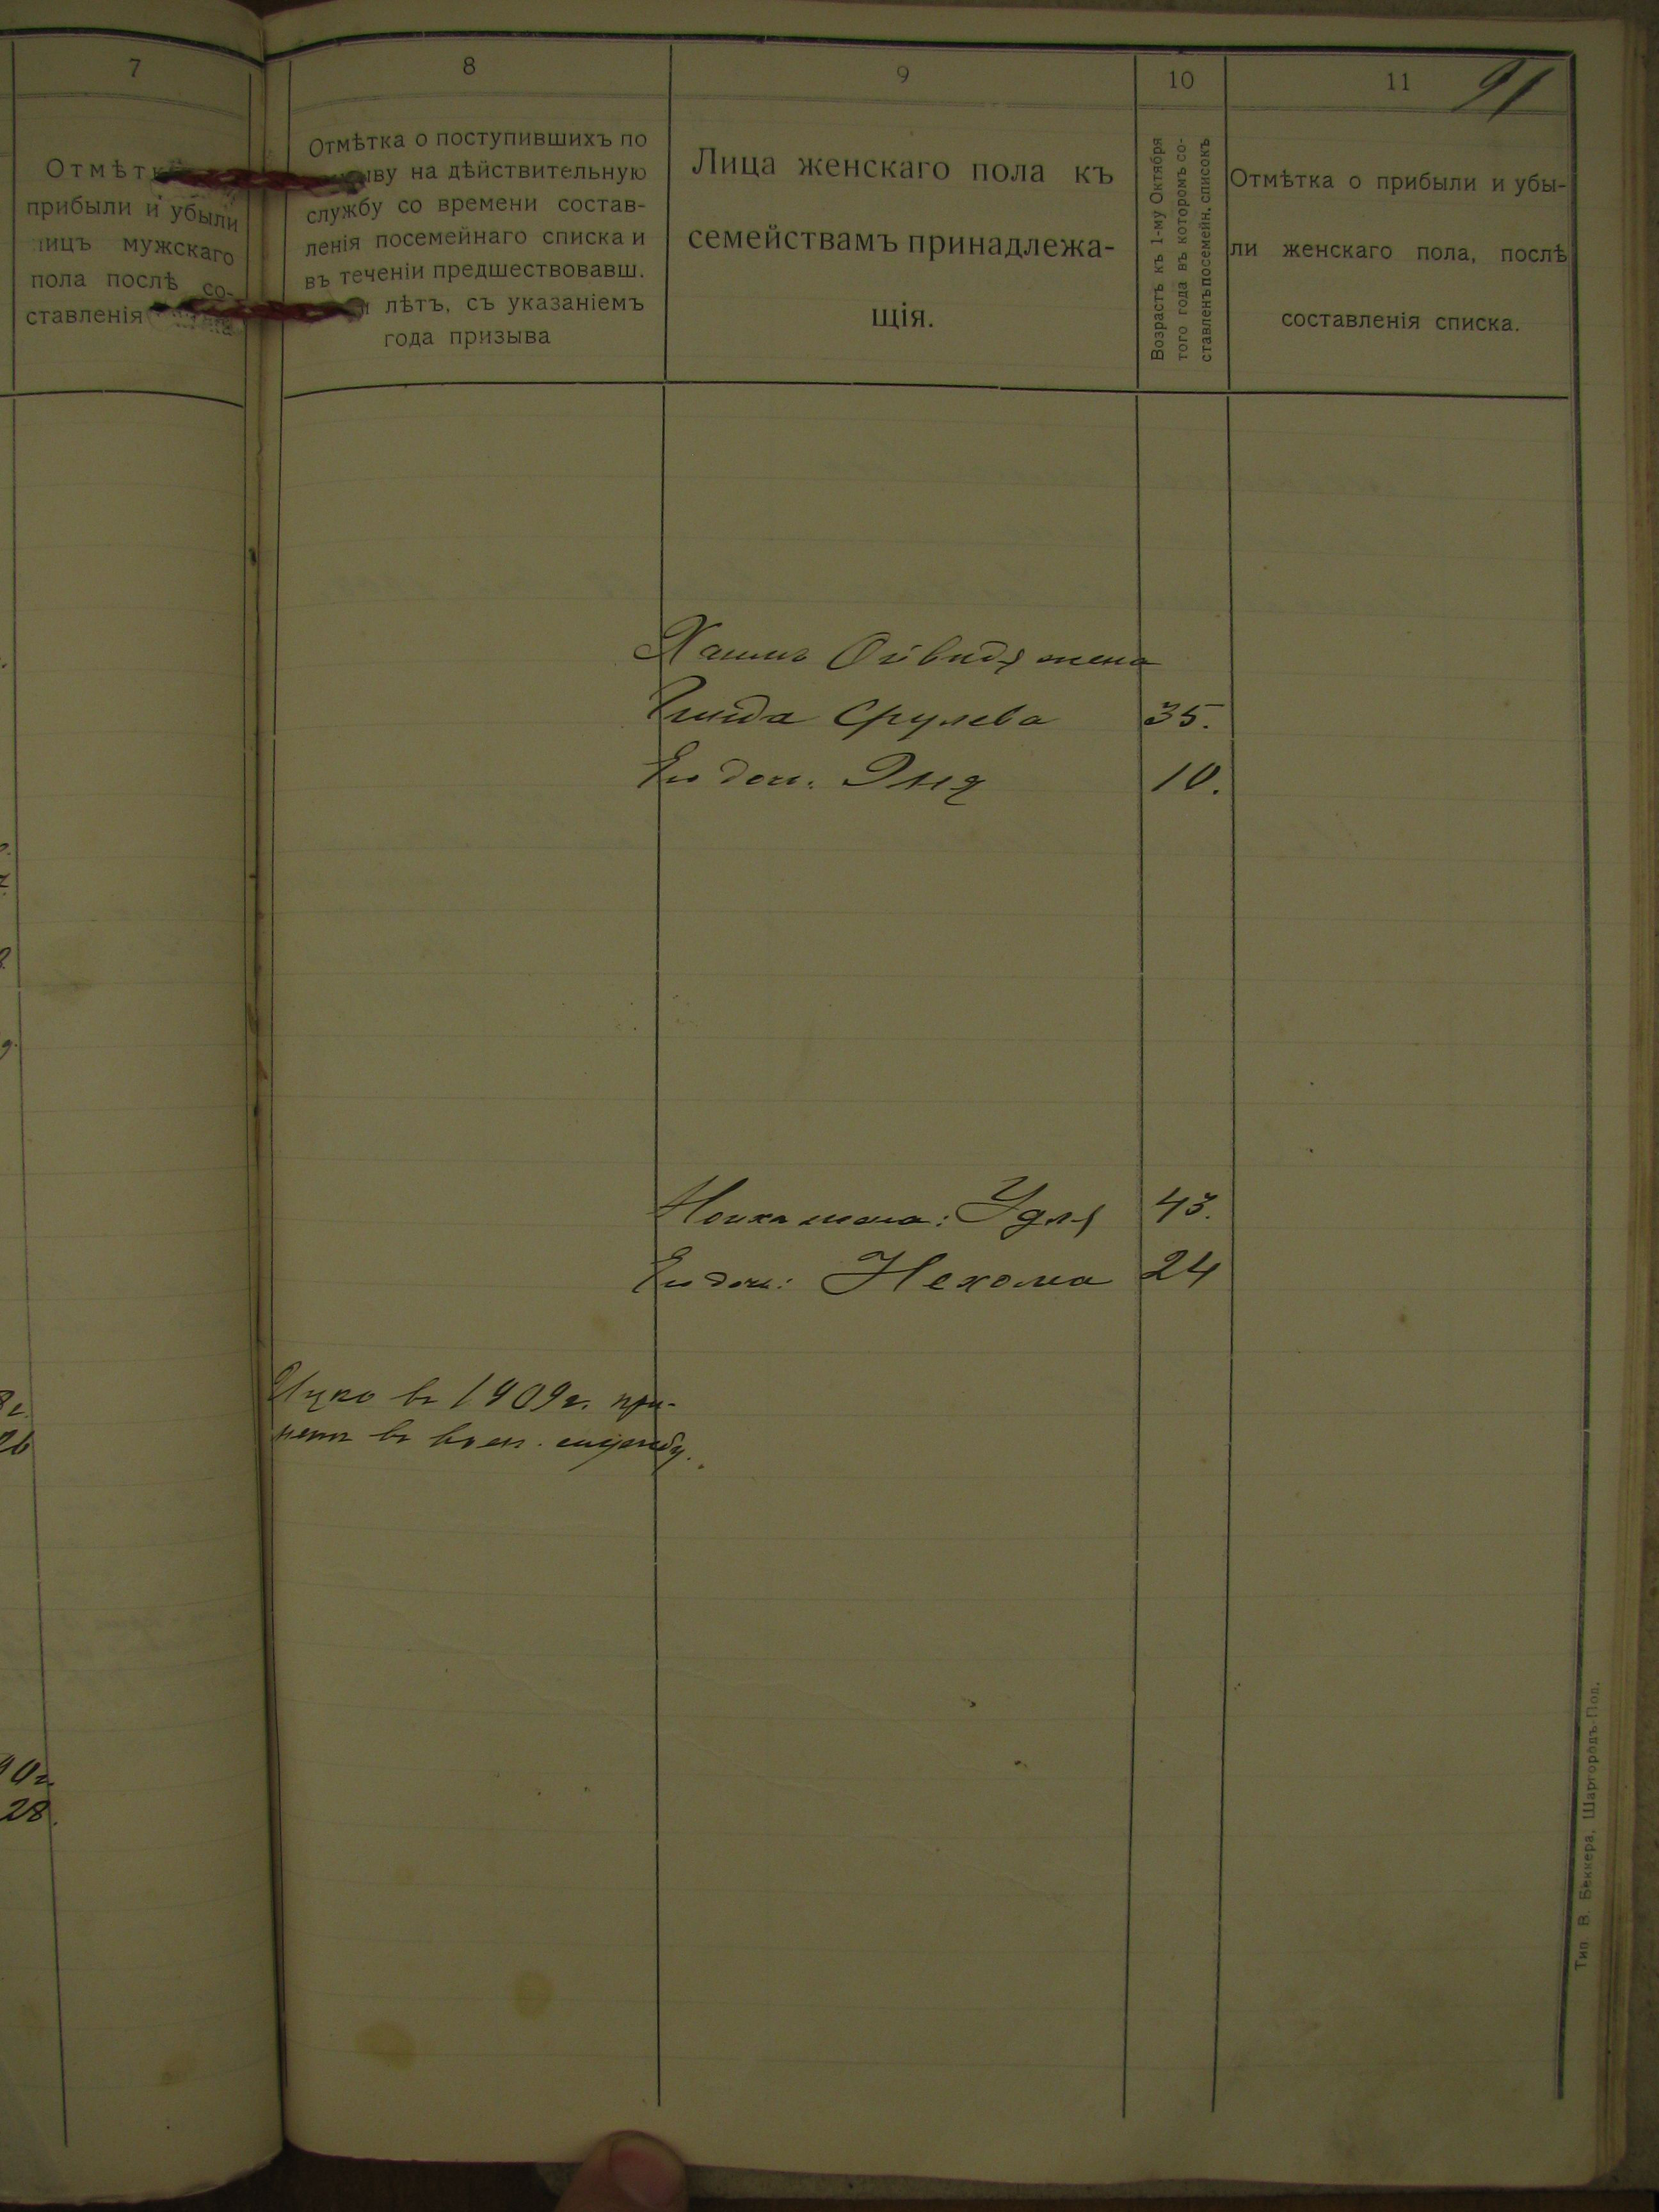 7
Отмѣтка
прибыли и убыли
лицъ мужскаго
пола послѣ со-
ставленія
28.
8
Отмѣтка о поступившихъ по
на дѣйствительную
службу со времени состав-
ленія посемейнаго списка и
въ теченіи предшествовавш.
лѣтъ, съ указаніемъ
года призыва
9
Лица женскаго пола къ
семействамъ принадлежа-
щія.
10
Возрастъ къ 1-му Октября
того года въ которомъ со-
ставленъ посемейн. списокъ
11
91
Отмѣтка о прибыли и убы-
ли женскаго пола, послѣ
составленія списка.
жена
Срулева 35.
Его доч. Эня 10.
жена: Удля 43.
Его доч: Нехома 24
Ицко въ 1909 г. при-
нятъ въ воен. службу.
Тип В. Беккера, Шаргородъ-Под.